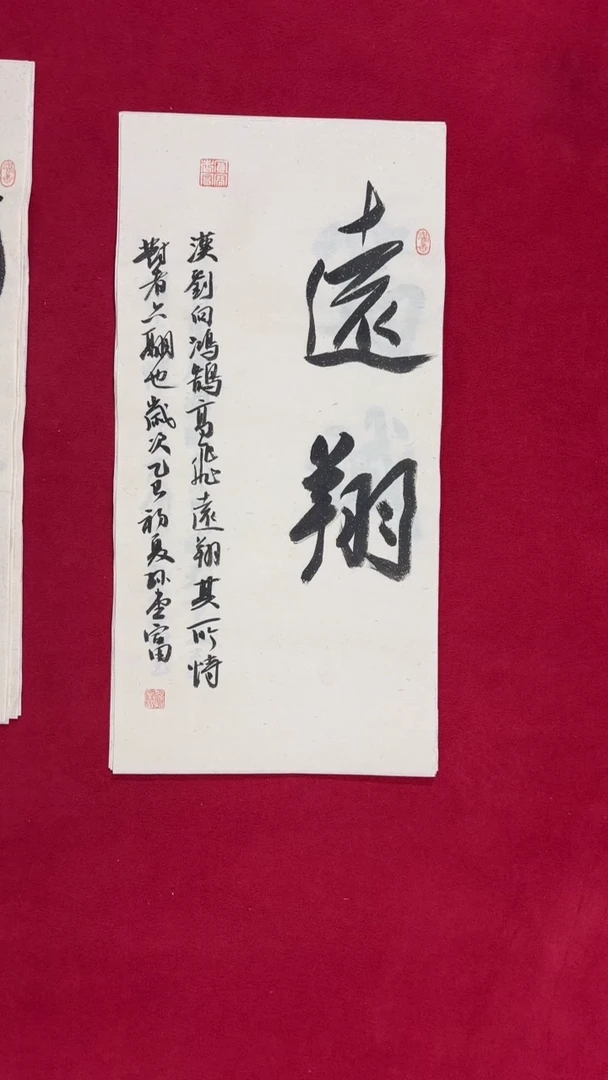 遠翔
漢劉向鴻鵠高飛遠翔其所恃
對者六翮也歲次乙巳初夏孫堂富